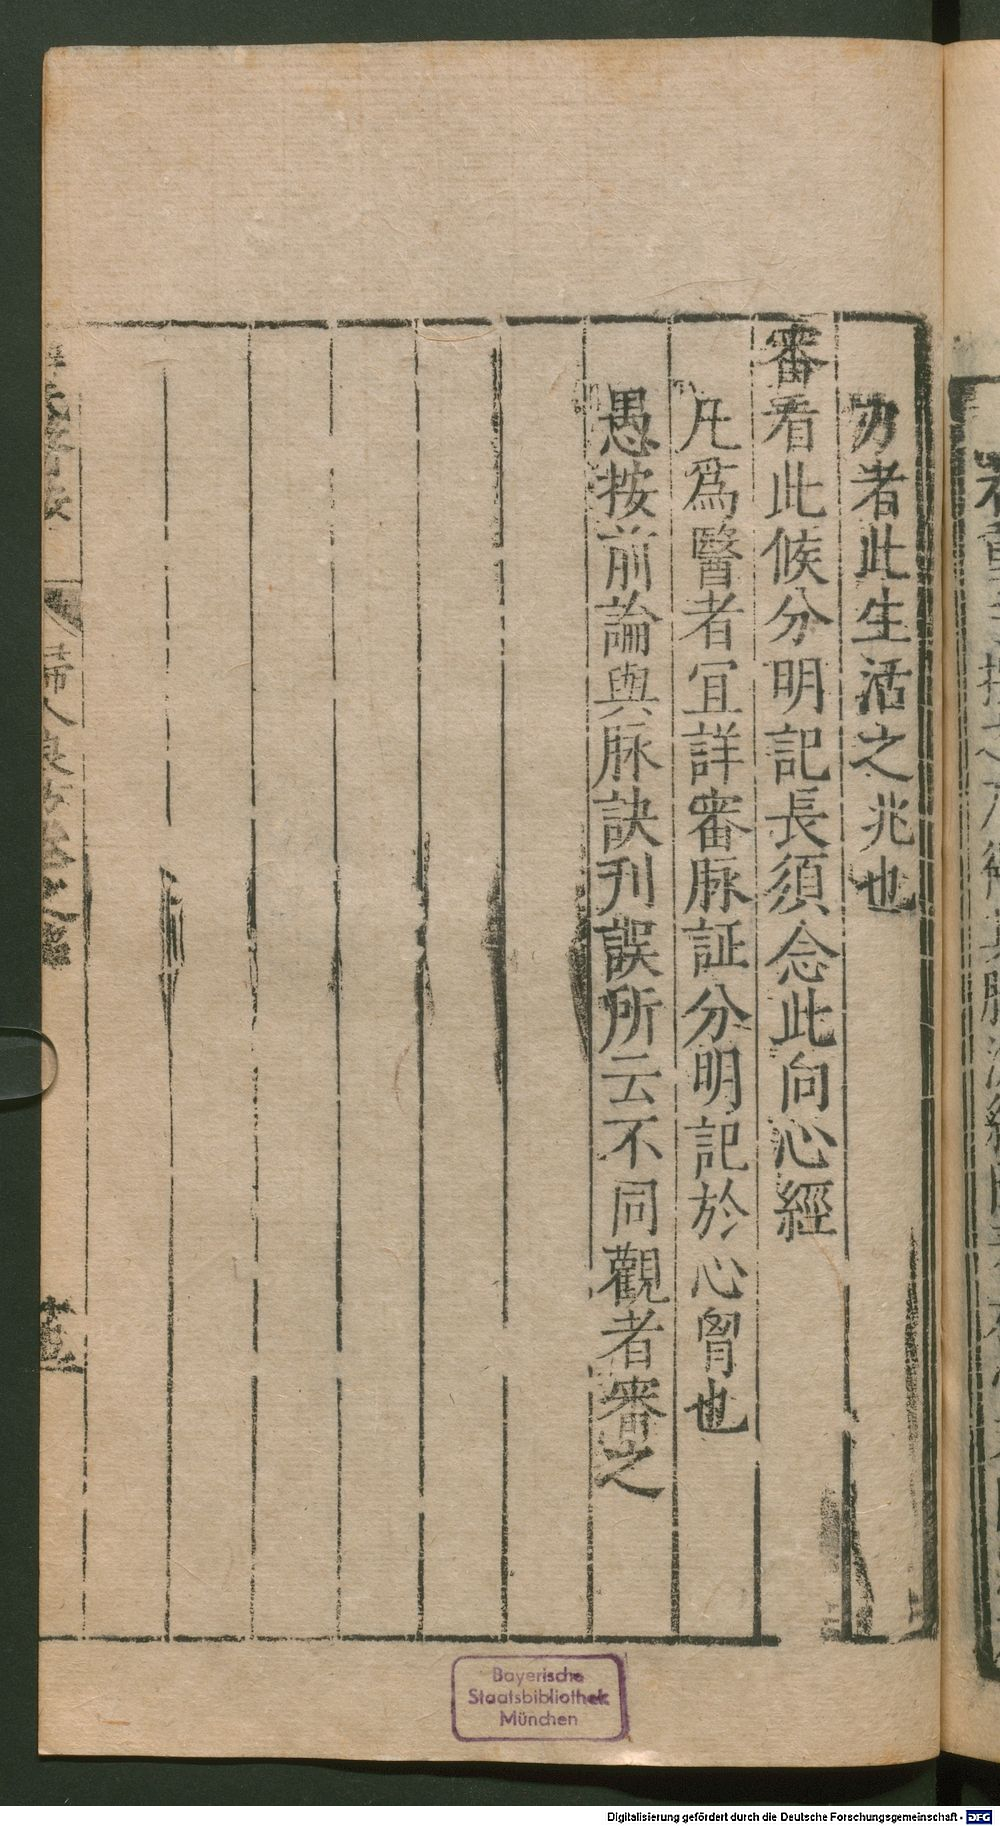 力者此生活之兆也
審看此候分明記長須念此向心經
凡爲醫者宜詳審脉証分明記於心胷也
愚按前論與脉訣刊誤所云不同觀者審之
婦人良方卷之
Bayerische
Staatsbibliothek
München
Digitalisierung gefördert durch die Deutsche Forschungsgemeinschaft - DFG